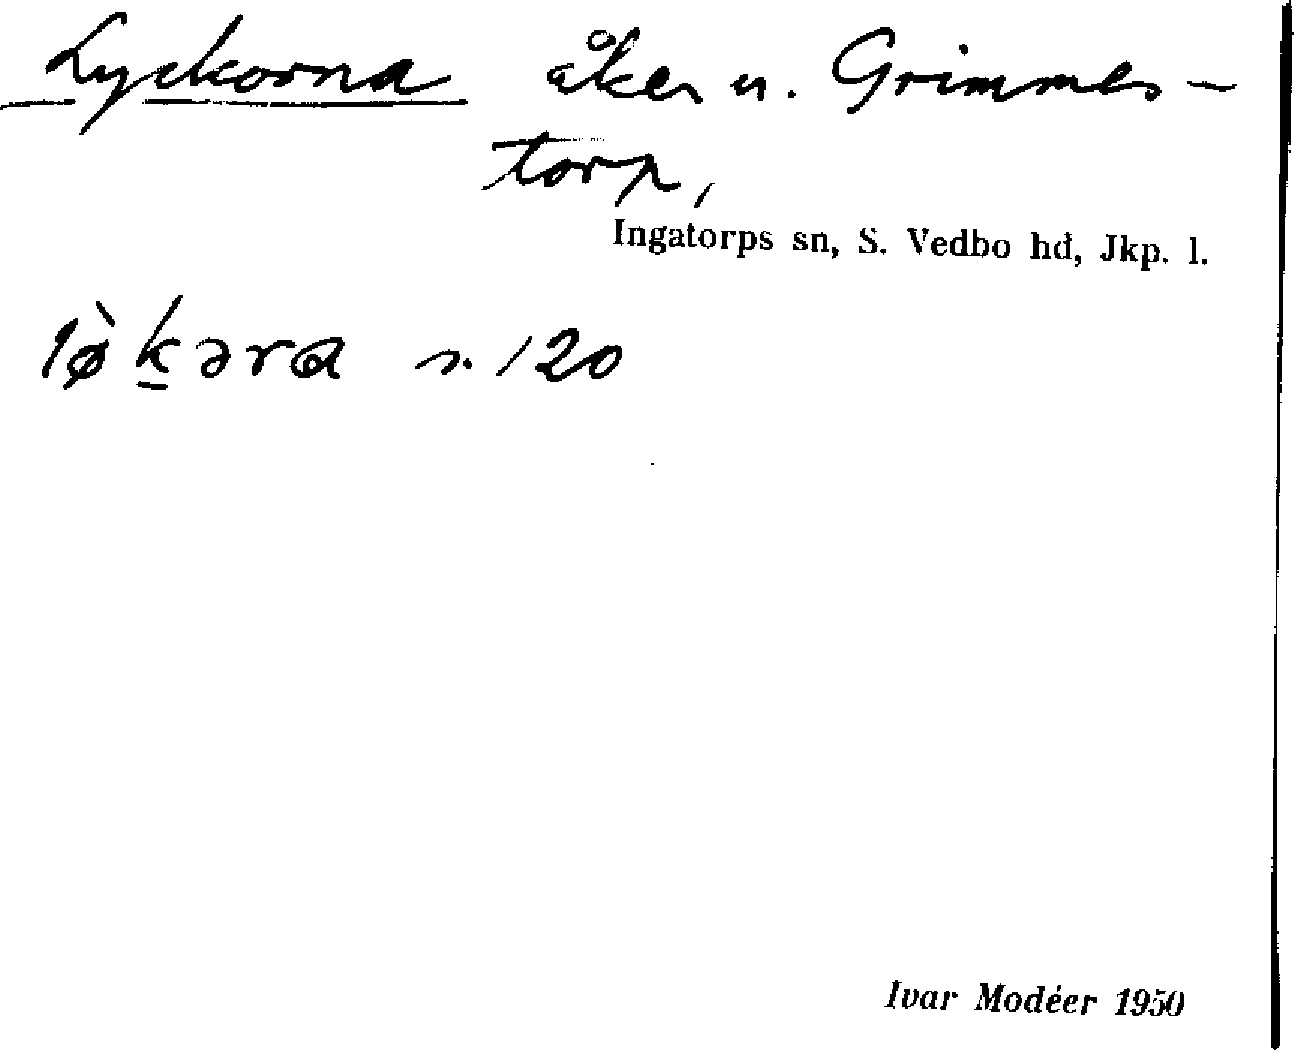 Lyckorna åker u. Grimmes-
torp,
Ingatorps sn, S. Vedbo hd, Jkp. l.
lø̀k̠əra s. 120
Ivar Modéer 1950